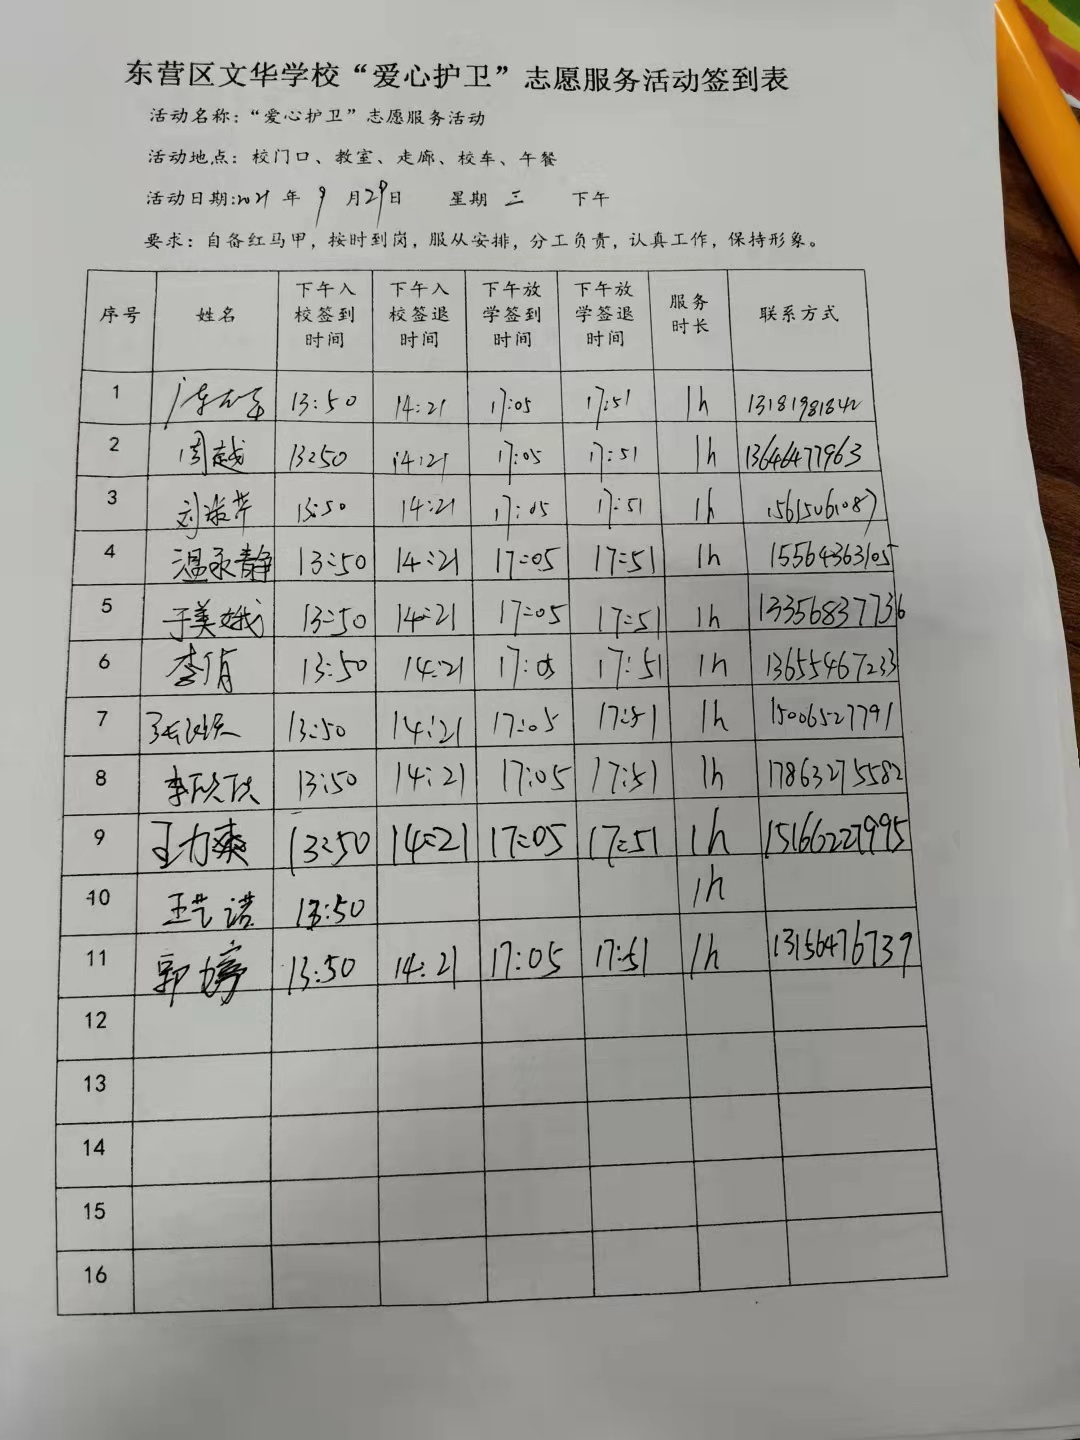 东营区文华学校“爱心护卫”志愿服务活动签到表
活动名称：“爱心护卫”志愿服务活动
活动地点：校门口、教室、走廊、校车、午餐
活动日期：2021 年 9 月 29 日 星期 三 下午
要求：自备红马甲，按时到岗，服从安排，分工负责，认真工作，保持形象。
序号 姓名 下午入校签到时间 下午入校签退时间 下午放学签到时间 下午放学签退时间 服务时长 联系方式
1 13:50 14:21 17:05 17:51 1h 13181981842
2 周越 13:50 14:21 17:05 17:51 1h 13646477963
3 13:50 14:21 17:05 17:51 1h 15615061087
4 温永静 13:50 14:21 17:05 17:51 1h 15564363105
5 于美娥 13:50 14:21 17:05 17:51 1h 13356837736
6 李倩 13:50 14:21 17:05 17:51 1h 13655467233
7 13:50 14:21 17:05 17:51 1h 15006527791
8 李欣欣 13:50 14:21 17:05 17:51 1h 17863275582
9 王力爽 13:50 14:21 17:05 17:51 1h 15166227995
10 王艺诺 13:50 1h
11 郭婷 13:50 14:21 17:05 17:51 1h 13156476739
12
13
14
15
16